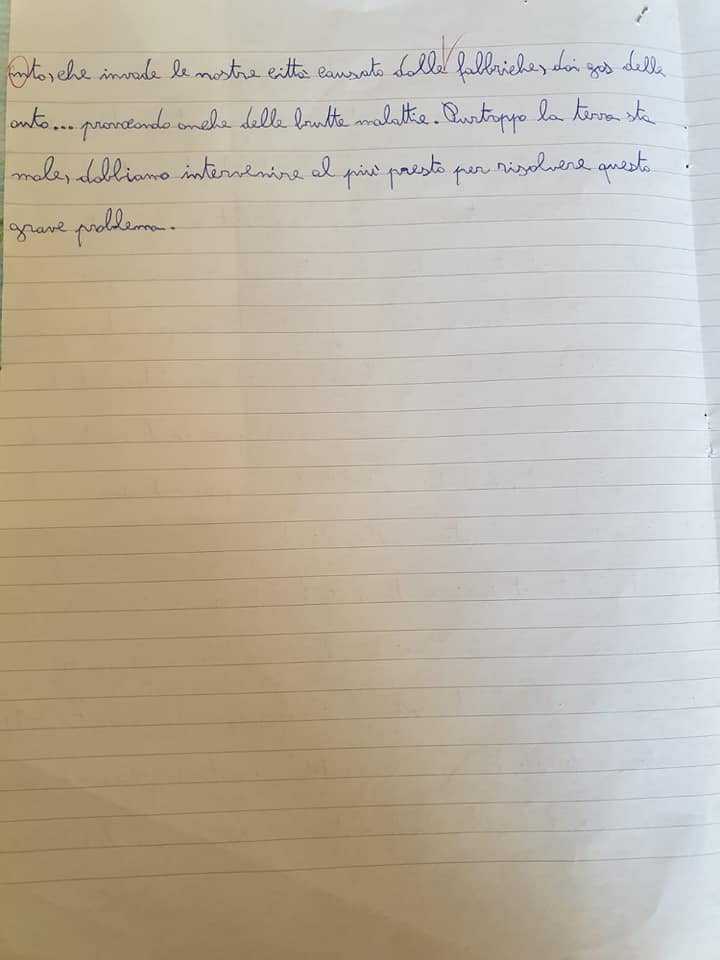 nto, che invade le nostre città causato dalle fabbriche, dai gas delle
auto... provocando anche delle brutte malattie. Purtroppo la terra sta
male, dobbiamo intervenire al più presto per risolvere questo
grave problema.